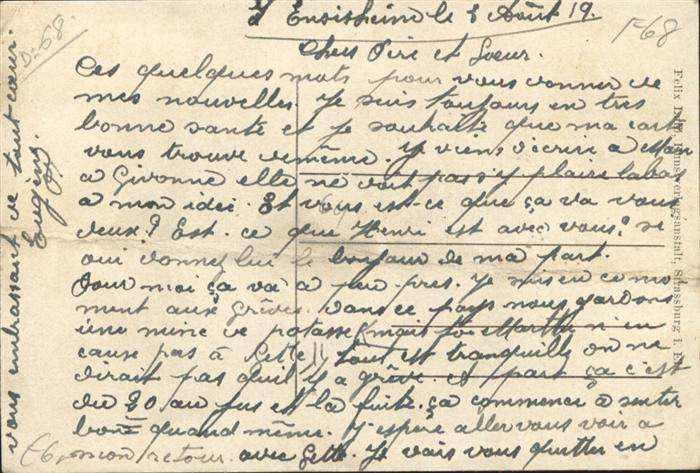 Ensisheim le 8 Août 19.
Chers Père et Soeur.
Ces quelques mots pour vous donner de
mes nouvelles. Je suis toujours en très
bonne santé et je souhaite que ma carte
vous trouve de même. Je viens d'écrire à
à Givonne elle ne doit pas s'y plaire labas
à mon idei. Et vous est-ce que ça va vous
deux? Est-ce que Henri est avec vous? si
oui donnez lui le bonjour de ma part.
Pour moi ça va à peu près. Je suis en ce mo
ment aux grèves. Dans ce pays nous gardons
une mine de potasse (mais toi Marthe n'en
cause pas à Gette) tout est tranquille on ne
dirait pas qu'il y a grève. A part ça c'est
du 20 au jus et la fuite. ça commence à sentir
bon quand même. J'espère aller vous voir à
mon retour avec Gette. Je vais vous quitter en
vous embrassant de tout coeur.
Eugène
D-68
F-68
€6
Felix Kunstverlagsanstalt, Strassburg i. E.